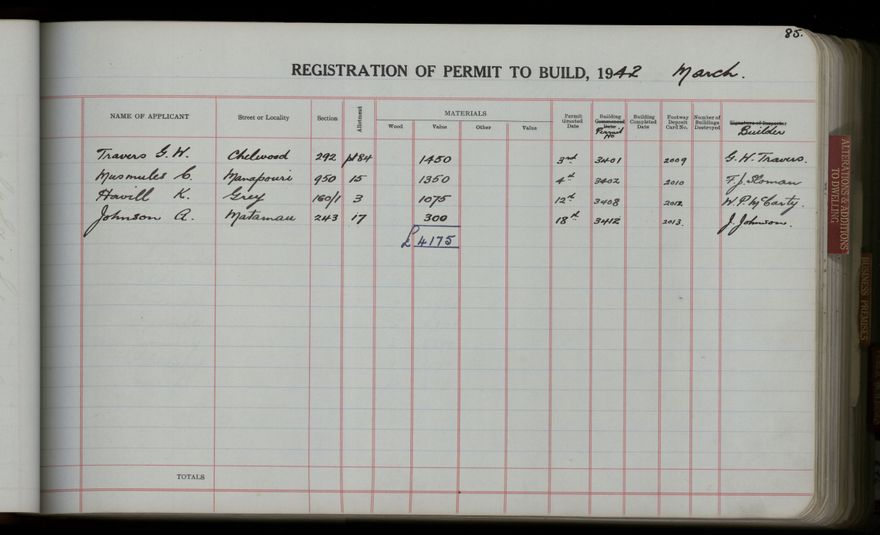 85.
REGISTRATION OF PERMIT TO BUILD, 1942 March.
NAME OF APPLICANT Street or Locality Section Allotment MATERIALS Wood Value Other Value Permit Granted Date Building Commenced Date Permit No Building Completed Date Footway Deposit Card No. Number of Buildings Destroyed Signature of Inspector Builder
Travers G. W. Chelwood 292 pt 84 1450 3rd 3401 2009 G. W. Travers.
Musmules C. Manapouri 950 15 1350 4th 3402 2010 F. J. Sloman
Havill K. Grey 160/1 3 1075 12th 3408 2012. W. P. McCarty.
Johnson A. Matamau 243 17 300 18th 3412 2013. J. Johnson.
£4175
TOTALS
ALTERATIONS & ADDITIONS
TO DWELLING
BUSINESS PREMISES